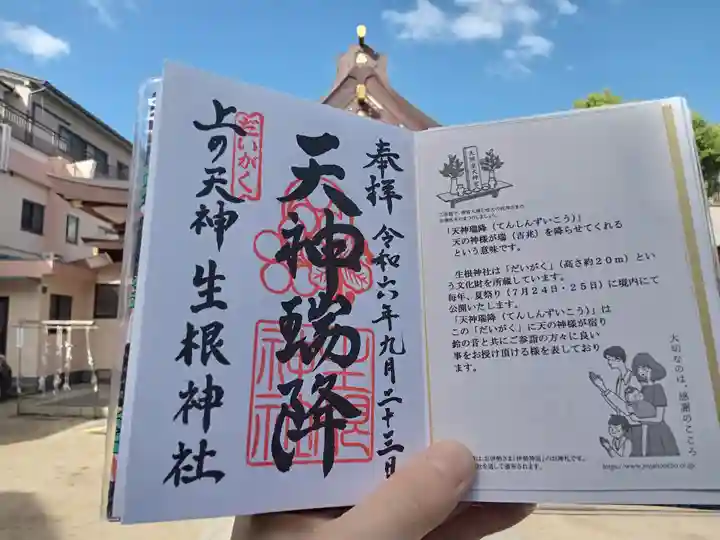 奉拝 令和六年九月二十三日
天神瑞降
だいがく
上の天神 生根神社
「天神瑞降（てんしんずいこう）」
天の神様が瑞（吉兆）を降らせてくれる
という意味です。
生根神社は「だいがく」（高さ約２０ｍ）とい
う文化財を所蔵しています。
毎年、夏祭り（７月２４日・２５日）に境内にて
公開いたします。
「天神瑞降（てんしんずいこう）」は
この「だいがく」に天の神様が宿り
鈴の音と共にご参詣の方々に良い
事をお授け頂ける様を表しており
ます。
大切なのは、感謝のこころ